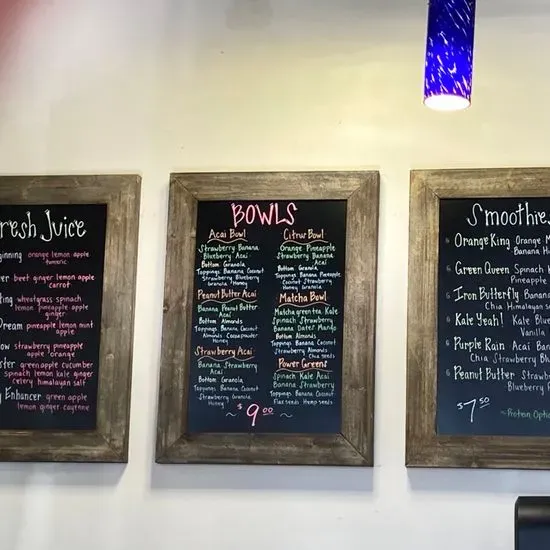 resh Juice
ginning orange lemon apple
turmeric
er beet ginger lemon apple
carrot
ing wheatgrass spinach
lemon pineapple apple
ginger
Dream pineapple lemon mint
apple
ow strawberry pineapple
apple orange
ster green apple cucumber
spinach lemon kale ginger
celery himalayan salt
y Enhancer green apple
lemon ginger cayenne
BOWLS
Acai Bowl
Strawberry Banana
Blueberry Acai
Bottom: Granola
Toppings Banana Coconut
Strawberry Granola
Honey
Peanut Butter Acai
Banana Peanut Butter
Acai
Bottom Almonds
Toppings Banana Coconut
Almonds Cacaopowder
Honey
Strawberry Acai
Banana Strawberry
Acai
Bottom: Granola
Toppings Banana Coconut
Strawberry Granola
Honey
Citrus Bowl
Orange Pineapple
Strawberry Banana
Acai
Bottom: Granola
Toppings Banana Pineapple
Coconut Strawberry
Honey Granola
Matcha Bowl
Matcha green tea Kale
Spinach Strawberry
Banana Dates Mango
Bottom Almonds
Toppings Banana Coconut
Strawberry Almonds
Chia seeds
Power Greens
Spinach Kale Acai
Banana Strawberry
Bottom Almonds
Toppings Banana Coconut
Flax seeds Hemp seeds
~ $9.00 ~
Smoothie
Orange King Orange M
Banana H
Green Queen Spinach
Pineapple
Iron Butterfly Banan
Chia Himalayan s
Kale Yeah! Kale Blue
Vanilla
Purple Rain Acai Ban
Chia Strawberry Blu
Peanut Butter Strawb
Blueberry
$7.50
~Protein Optio